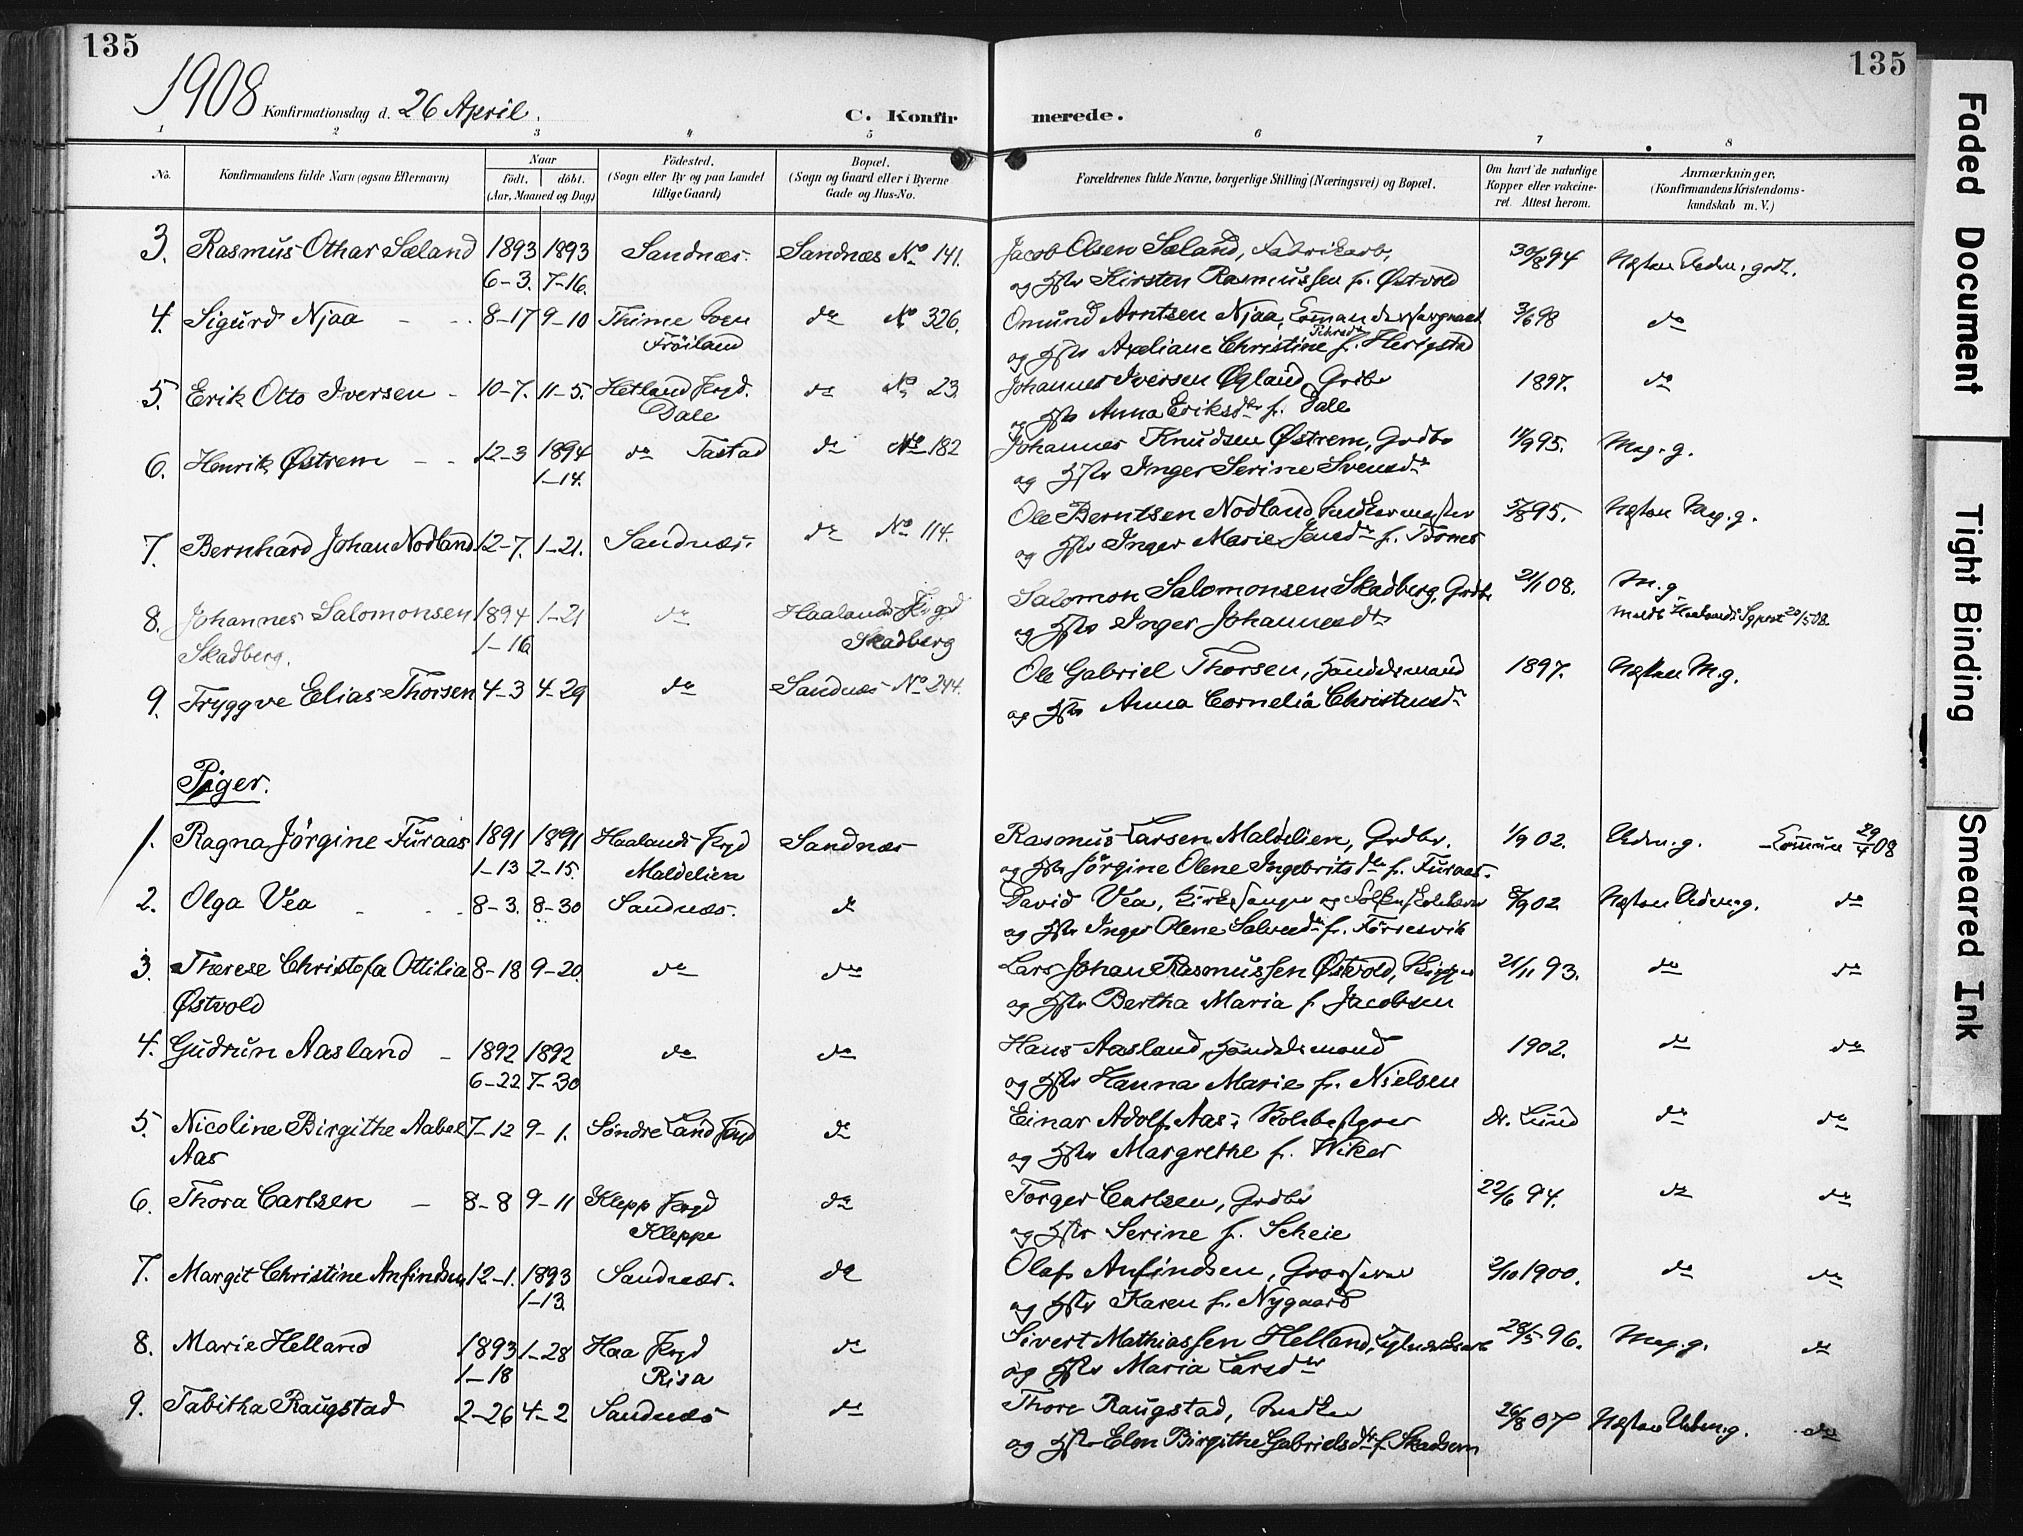 135
135
1908 Konfirmationsdag d. 26 April.
C. Konfirmerede.
1 2 3 4 5 6 7 8
No. Konfirmandens fulde Navn (ogsaa Efternavn) Naar født, døbt. (Aar, Maaned og Dag) Födested. (Sogn eller By og paa Landet tillige Gaard) Bopæl. (Sogn og Gaard eller i Byerne Gade og Hus-No. Forældrenes fulde Navne, borgerlige Stilling (Næringsvei) og Bopæl. Om havt de naturlige Kopper eller vakcineret. Attest herom. Anmærkninger. (Konfirmandens Kristendomskundskab m. V.)
3. Rasmus Othar Sæland 1893 1893 Sandnæs. Sandnæs No 141. Jacob Olsen Sæland, Fabrikarb. 30/8 94 Næsten Udm. godt.
6-3. 7-16. og Hstr Kirsten Rasmussen f. Østvold
4. Sigurd Njaa 8-17 9-10 Thime Sogn do No 326. Omund Arntsen Njaa, 3/6 98 do
Fröiland og Hstr Axeliane Christine f. Herigstad
5. Erik Otto Iversen 10-7. 11-5. Hetland Prgd. do No 23. Johannes Iversen Øgland, Grdbr 1897. do
Dale og Hstr Anna Eriksdtr f. Dale
6. Henrik Østrem 12-3 1894 do Tastad do No 182 Johannes Knudsen Østrem, Grdbr 11/9 95. Meg. g.
1-14. og Hstr Inger Serine Svensdtr
7. Bernhard Johan Nodland 12-7. 1-21. Sandnæs. do No 114. Ole Berntsen Nodland, Snedkermester 5/8 95. Næsten Meg. g.
og Hstr Inger Marie Jensdtr f. Tjomes
8. Johannes Salomonsen 1894 1-21 do Haalands Prgd Salomon Salomonsen Skadberg, Grdbr 21/1 08. M. g
Skadberg. 1-16 Skadberg og Hstr Inger Johannesdtr meldt Haalands Sgprst 20/5 08.
9. Tryggve Elias Thorsen 4-3 4-29 do Sandnæs No 244. Ole Gabriel Thorsen, Handelsmand 1897. Næsten M. g.
og Hstr Anna Cornelia Christensdtr
Piger.
1. Ragna Jørgine Furaas 1891 1891 Haalands Prgd Sandnæs Rasmus Larsen Maldelien, Grdbr. 1/9 02. Udm. g. Commune 29/4 08
1-13 2-15. Maldelien og Hstr Jørgine Olene Ingebritsdtr f. Furaas.
2. Olga Vea 8-3. 8-30 Sandnæs. do David Vea, Kirkesanger og Folkeskolelærer 8/9 02 Næsten Udm. g. do
og Hstr Inger Olene f. Førresvik
3. Therese Christofa Ottilia 8-18 9-20. do do Lars Johan Rasmussen Østvold, Skipper 21/11 93. do do
Østvold og Hstr Bertha Maria f. Jacobsen
4. Gudrun Aasland 1892 1892 do do Hans Aasland, Handelsmand 1902. do do
6-22 7-30 og Hstr Hanna Marie f. Nielsen
5. Nicoline Birgithe Aabel 7-12 9-1. Søndre Land Prgd do Einar Adolf Aas, Skolebestyrer Dr. Lund do do
Aas og Hstr Margrethe f. Wiker
6. Thora Carlsen 8-8 9-11 Klepp Prgd do Torger Carlsen, Grdbr 22/6 94. do do
Kleppe og Hstr Serine f. Scheie
7. Margit Christine Anfindsen 12-1. 1893 Sandnæs. do Olaf Anfindsen, Grosserer 2/10 1900. do do
1-13. og Hstr Karen f. Nygaard
8. Marie Helland 1893 1-28 Haa Prgd do Sivert Mathiassen Helland, 28/5 96. Meg. g. do
1-18 Risa og Hstr Maria Larsdtr
9. Tabitha Raugstad 2-26 4-2 Sandnæs do Thore Raugstad, Snedker 26/8 07 Næsten Udm. g. do
og Hstr Elen Birgithe Gabrielsdtr f. Skadsem
Faded Document
Tight Binding
Smeared Ink